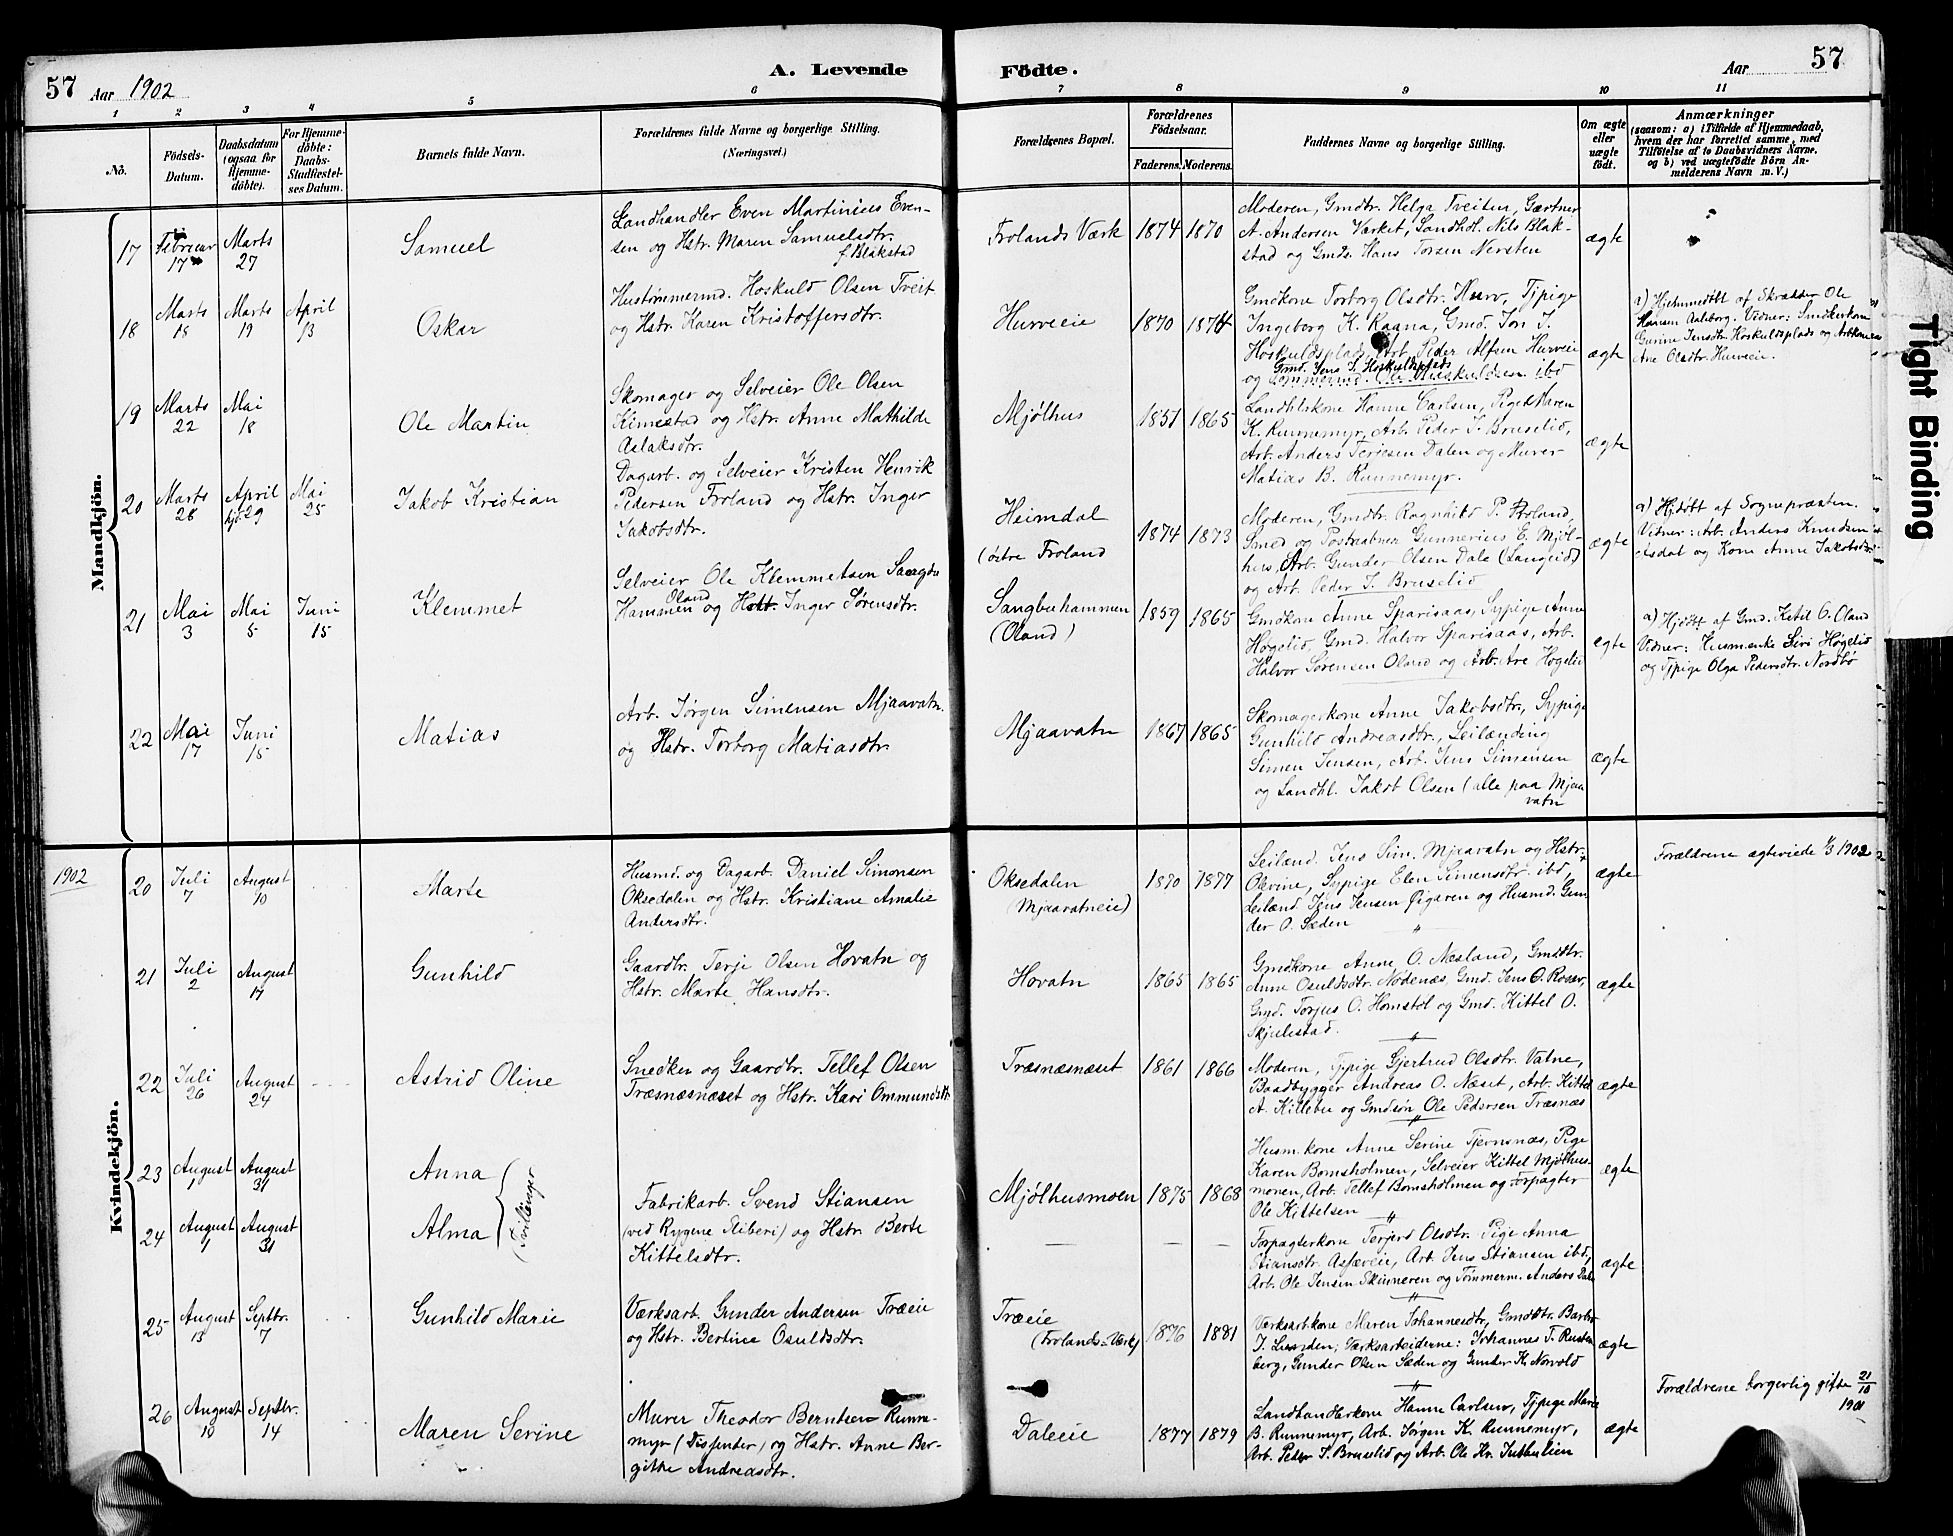 57 Aar 1902
A. Levende Födte.
Aar 57
1 2 3 4 5 6 7 8 9 10 11
No.
Födsels-
Datum.
Daabsdatum
(ogsaa for
Hjemme-
döbte).
For Hjemme-
döbte:
Daabs-
Stadfæstel-
ses Datum.
Barnets fulde Navn.
Forældrenes fulde Navne og borgerlige Stilling.
(Næringsvei.)
Forældrenes Bopæl.
Forældrenes
Födselsaar.
Faderens. Moderens.
Faddernes Navne og borgerlige Stilling.
Om ægte
eller
uægte
födt.
Anmærkninger
(saasom: a) i Tilfælde af Hjemmedaab,
hvem der har forrettet samme, med
Tilföielse af to Daabsvidners Navne,
og b) ved uægtefödte Börn An-
melderens Navn m. V.)
Mandkjön.
17
Februar
17
Marts
27
Samuel
Landhandler Even Martinius Even-
sen og Hstr. Maren Samuelsdtr.
f. Blakstad
Frolands Værk
1874 1870
Moderen, Gmdtr. Helga Tveiten, Gartner
A. Andersen Værket, Landhl. Nils Blak-
stad og Gmds. Hans Torsen Nersten
ægte
18
Marts
18
Marts
19
April
13
Oskar
Hustømmermd. Hoskuld Olsen Tveit
og Hstr. Karen Kristoffersdtr.
Hurveie
1870 1874
Gmdkone Torborg Olsdtr. Hurv, Tjpige
Ingeborg K. Raana, Gmd. Jon J.
Hoskuldsplads, Arb. Peder Alfsen Hurveie
Gmd. Jens J. Hoskuldsplads
og Tømmermd. Ole Huskuldsen ibd
ægte
a) Hjemmedøbt af Skrædder Ole
Hansen Aalborg. Vidner: Smedkerkone
Gurine Jensdtr. Hoskuldsplads og Arbkone
Ane Olsdtr. Hurveie.
19
Marts
22
Mai
18
Ole Martin
Skomager og Selveier Ole Olsen
Kimestad og Hstr. Anne Mathilde
Aslaksdtr.
Mjølhus
1851 1865
Landhlskone Hanne Carlsen, Pige Maren
K. Runnemyr, Arb. Peder J. Bruselid,
Arb. Anders Terjesen Dalen og Murer
Matias B. Runnemyr.
ægte
20
Marts
28
April
hjd. 29
Mai
25
Jakob Kristian
Dagarb. og Selveier Kristen Henrik
Pedersen Froland og Hstr. Inger
Jakobsdtr.
Heimdal
(østre Froland
1874 1873
Moderen, Gmdtr. Ragnhild P. Froland,
Smed og Postaabner Gunnerius E. Mjøl-
hus, Arb. Gunder Olsen Dale (Langeid)
og Arb. Peder J. Bruselid
ægte
a) Hjdøbt af Sognepræsten.
Vidner: Arb. Anders Knudsen
Asdal og Kone Anne Jakobsdtr.
21
Mai
3
Mai
5
Juni
15
Klemmet
Selveier Ole Klemmetsen Saagbu
Oland
Hammen og Hstr. Inger Sørensdtr.
Sangbuhammen
(Oland)
1859 1865
Gmdkone Anne Sparisaas, Sypige Anne
Høgelid, Gmd. Halvor Sparisaas, Arb.
Halvor Sørensen Oland og Arb. Are Høgelid
ægte
a) Hjdøbt af Gmd. Ketil O. Oland
Vidner: Husmenke Siri Høgelid
og Tjpige Olga Pedersdtr. Nordbø
22
Mai
17
Juni
15
Matias
Arb. Jørgen Simensen Mjaavatn
og Hstr. Torborg Matiasdtr.
Mjaavatn
1867 1865
Skomagerkone Anne Jakobsdtr., Sypige
Gunhild Andreasdtr., Leilænding
Simen Jensen, Arb. Jens Simensen
og Landhl. Jakob Olsen (alle paa Mjaa
vatn
ægte
1902
Kvindekjön.
20
Juli
7
August
10
Marte
Husmd. og Dagarb. Daniel Simonsen
Oksedalen og Hstr. Kristiane Amalie
Andersdtr.
Oksedalen
(Mjaavatneie)
1870 1877
Leilænd. Jens Sim. Mjaavatn og Hstr.
Olevine, Sypige Elen Simensdtr. ibd,
Leilænd. Jens Jensen Øigaren og Husmd. Gun
der O. Sæden
ægte
Forældrene ægteviede 1/3 1902
21
Juli
2
August
17
Gunhild
Gaardbr. Terje Olsen Hovatn og
Hstr. Marte Hansdtr.
Hovatn
1865 1865
Gmdkone Anne O. Næsland, Gmdtr.
Anne Osuldsdtr. Nødenæs, Gmd. Jens O. Roser,
Gmd. Torjus O. Homstøl og Gmd. Kittel O.
Skjulestad.
ægte
22
Juli
26
August
24
Astrid Oline
Snedker og Gaardbr. Tellef Olsen
Træsnæsnæset og Hstr. Kari Ommundsdtr.
Træsnæsnæset
1861 1866
Moderen, Tjpige Gjertrud Olsdtr. Vatne,
Baadbygger Andreas O. Næset, Arb. Kittel
A. Killebu og Gmdsøn Ole Pedersen Træsnæs
ægte
23
August
1
August
31
Anna
24
August
1
August
31
Alma
(Tvillinger)
Fabrikarb. Svend Stiansen
(ved Rygene Sliberi) og Hstr. Berte
Kittelsdtr.
Mjølhusmoen
1875 1868
Husm.kone Anne Serine Tjernsnæs, Pige
Karen Bomsholmen, Selveier Kittel Mjølhus-
monen, Arb. Tellef Bomsholmen og Forpagter
Ole Kittelsen
ægte
— — —
Forpagterkone Terjerd Olsdtr. Pige Anna
Stiansdtr. Asfæreie, Arb. Jens Stiansen ibd.,
Arb. Ole Jensen Skinneren og Tømmerm. Anders Dale
ægte
25
August
13
Septbr.
7
Gunhild Marie
Værksarb. Gunder Andersen Træeie
og Hstr. Bertine Osuldsdtr.
Træeie
(Frolands-Værk)
1876 1881
Værksarbkone Maren Johannesdtr., Gmdtr. Barbro
J. Lunden, Værksarbeiderne: Johannes T. Rusten
berg, Gunder Olsen Sæden og Gunder K. Norvold
ægte
26
August
10
Septbr.
14
Maren Serine
Murer Theodor Berntsen Runne-
myr (Dispenter) og Hstr. Anne Ber-
gitte Andreasdtr.
Daleie
1877 1879
Landhandlerkone Hanne Carlsen, Tjpige Marie
B. Runnemyr, Arb. Jørgen K. Runnemyr,
Arb. Peder J. Bruselid og Arb. Ole Kr. Juthulien
ægte
Forældrene borgerlig gifte 21/10
1901
Tight Binding